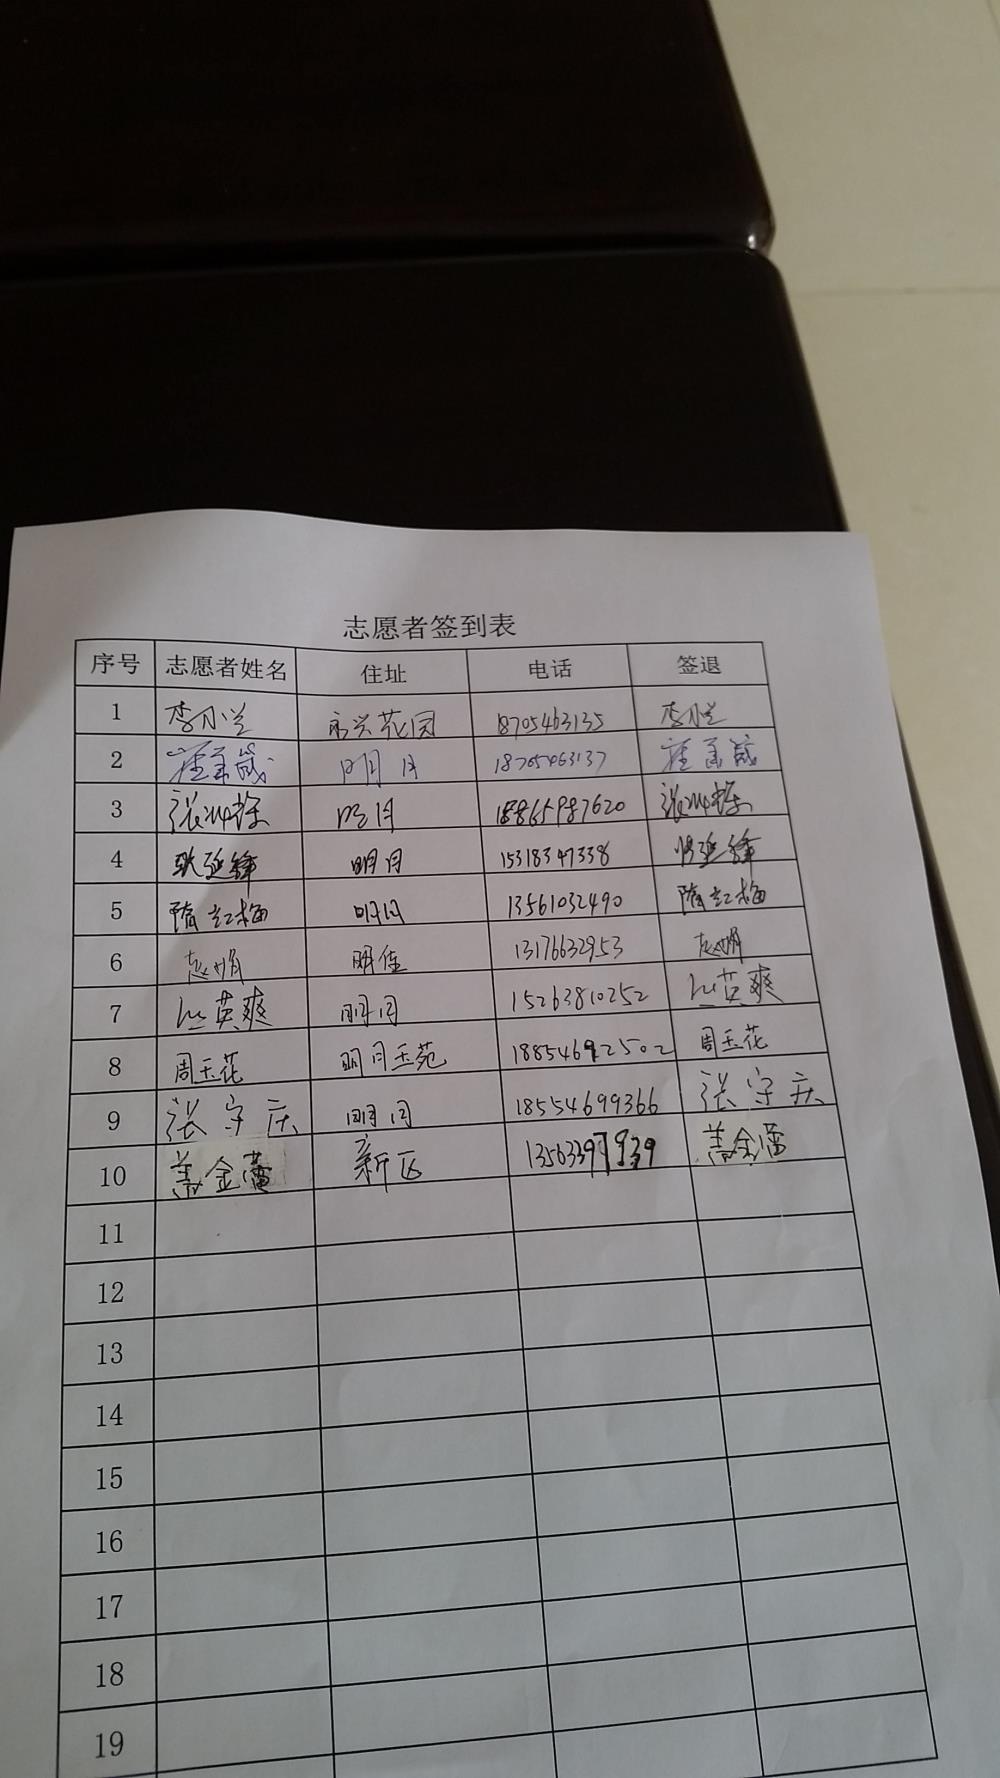 志愿者签到表
序号 志愿者姓名 住址 电话 签退
1 李小兰 永兴花园 18705463135 李小兰
2 明月 18705463137
3 明月 18865987620
4 耿延锋 明月 15318347338
5 隋红梅 明月 13561032490 隋红梅
6 赵娟 明佳 13176632953 赵娟
7 英爽 明月 15263810252 英爽
8 周玉花 明月玉苑 18854692502 周玉花
9 张守庆 明月 18554699366 张守庆
10 盖金 新区 盖金
11
12
13
14
15
16
17
18
19